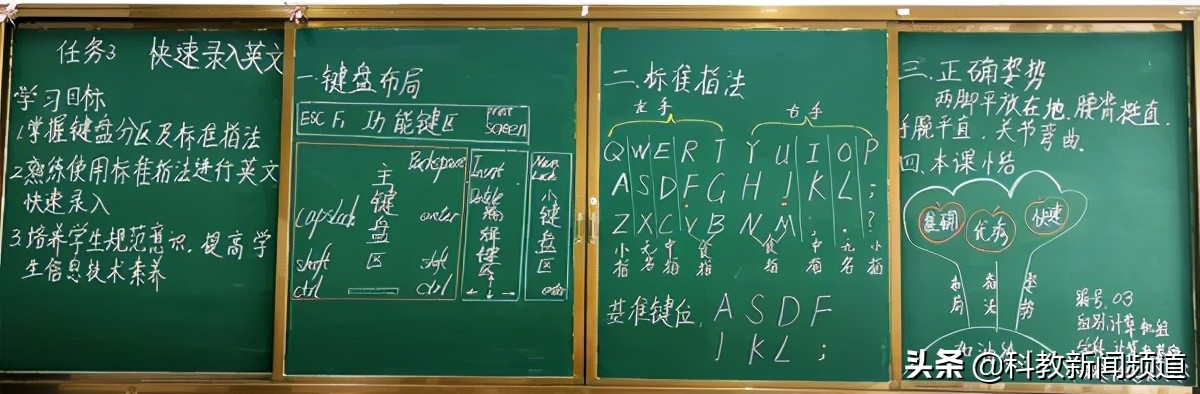 任务3 快速录入英文
学习目标
1.掌握键盘分区及标准指法
2.熟练使用标准指法进行英文
快速录入
3.培养学生规范意识,提高学
生信息技术素养
一.键盘布局
ESC F1 功能键区 Print Screen
主键盘区
Backspace
capslock enter
shift shift
ctrl ctrl
Insert
Delete
编辑键区
←↓→
Num Lock
小键盘区
二.标准指法
左手 右手
Q W E R T Y U I O P
A S D F G H J K L ;
Z X C V B N M , . ?
小指 无名 中指 食指 食指 中指 无名 小指
基准键位, A S D F
J K L ;
三.正确姿势
两脚平放在地,腰背挺直,
手腕平直,关节弯曲.
四.本课小结
准确 优秀 快速
布局 指法 姿势
编号.03
组别.计算机组
头条 @科教新闻频道